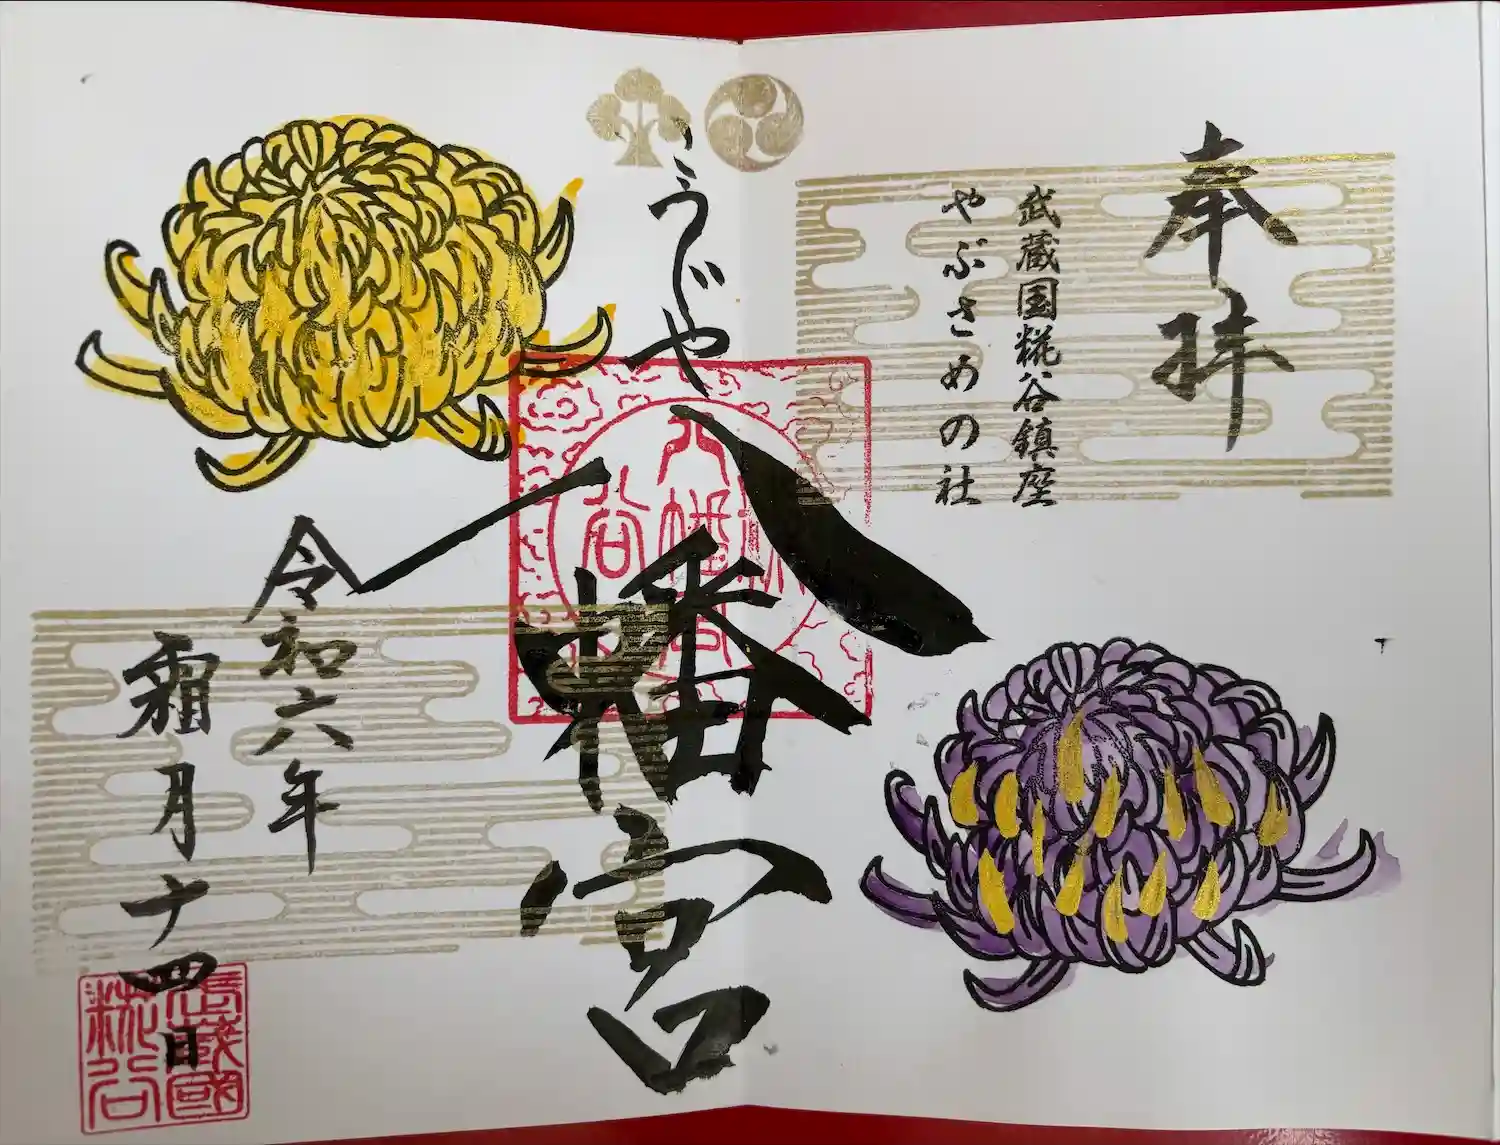 奉拝
武蔵国糀谷鎮座
やぶさめの社
こうじや
八幡宮
令和六年
霜月十四日
武蔵國
糀谷